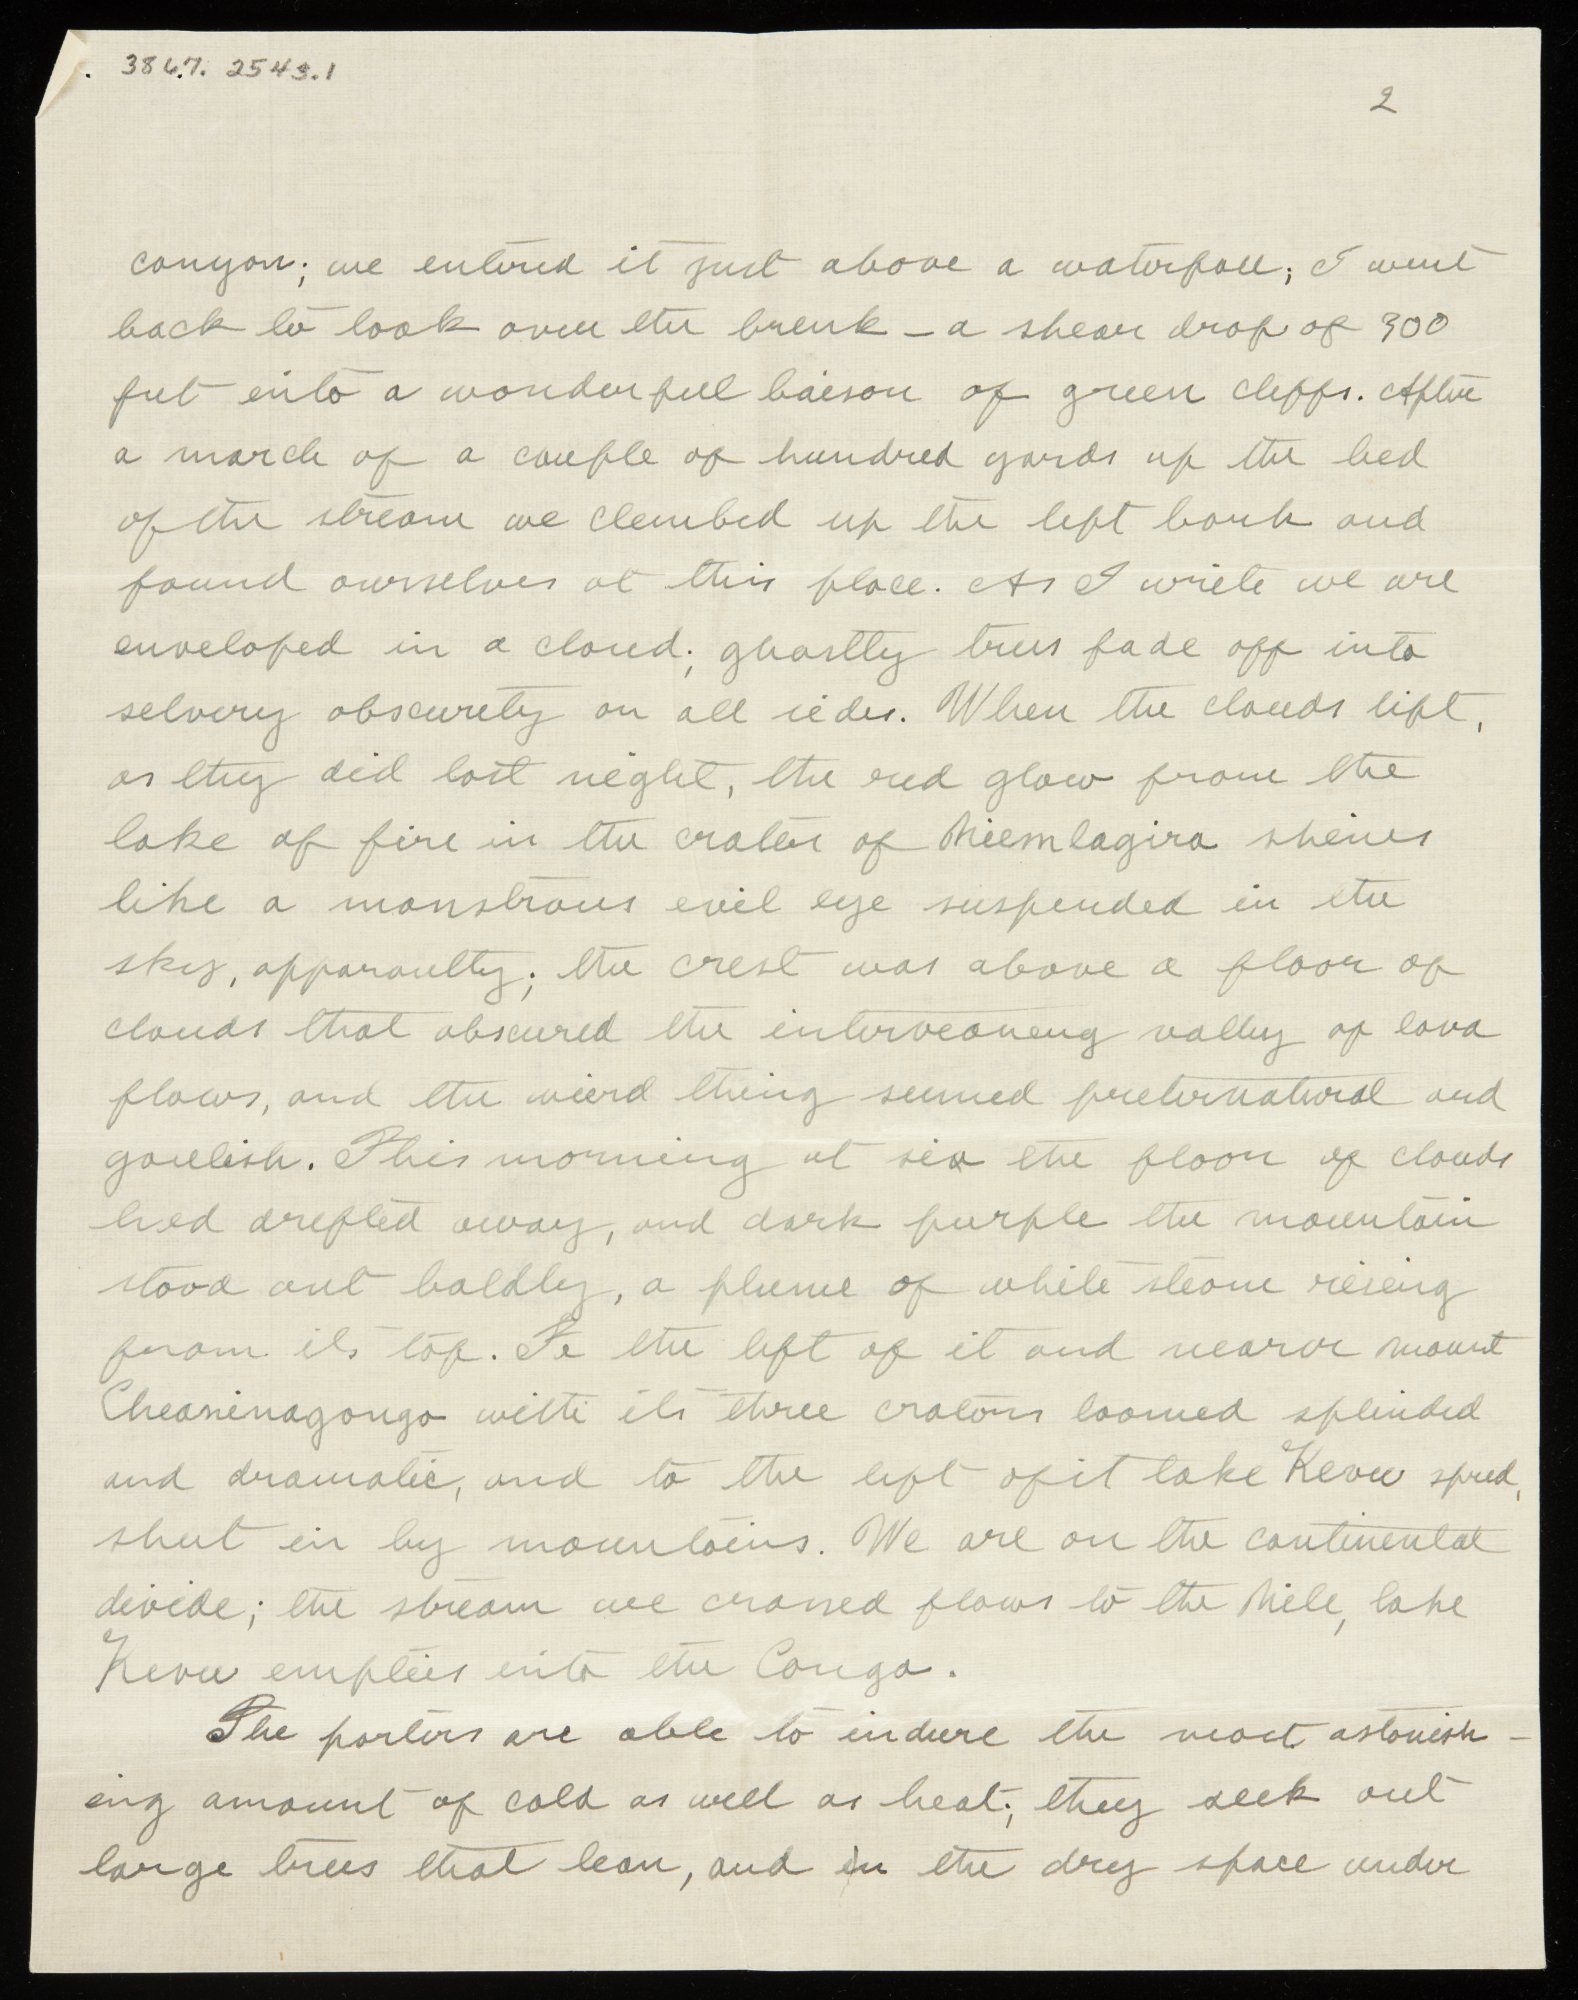 3867.2543.1
2
canyon; we entered it just above a waterfall; I went
back to look over the brink – a shear drop of 300
feet into a wonderfull baison of green cliffs. After
a march of a couple of hundred yards up the bed
of the stream we climbed up the left bank and
found ourselves at this place. As I write we are
enveloped in a cloud; ghostly trees fade off into
silvery obscurity on all sides. When the clouds lift,
as they did last night, the red glow from the
lake of fire in the crater of Niemlagira shines
like a monstrous evil eye suspended in the
sky, apparantly; the crest was above a floor of
clouds that obscured the interveaneng valley of lava
flows, and the wierd thing seemed preternatural and
goulish. This morning at six the floor of clouds
had drifted away, and dark purple the mountain
stood out baldly, a plume of white steam riseing
from its top. To the left of it and nearer mount
Cheaninagongo with its three craters loomed splinded
and dramatic, and to the left of it lake Kevu spred,
shut in by mountains. We are on the continental
divide; the stream we crossed flows to the Nile, lake
Kevu empties into the Congo.
The porters are able to indure the most astonish-
ing amount of cold as well as heat; they seek out
large trees that lean, and in the dry space under